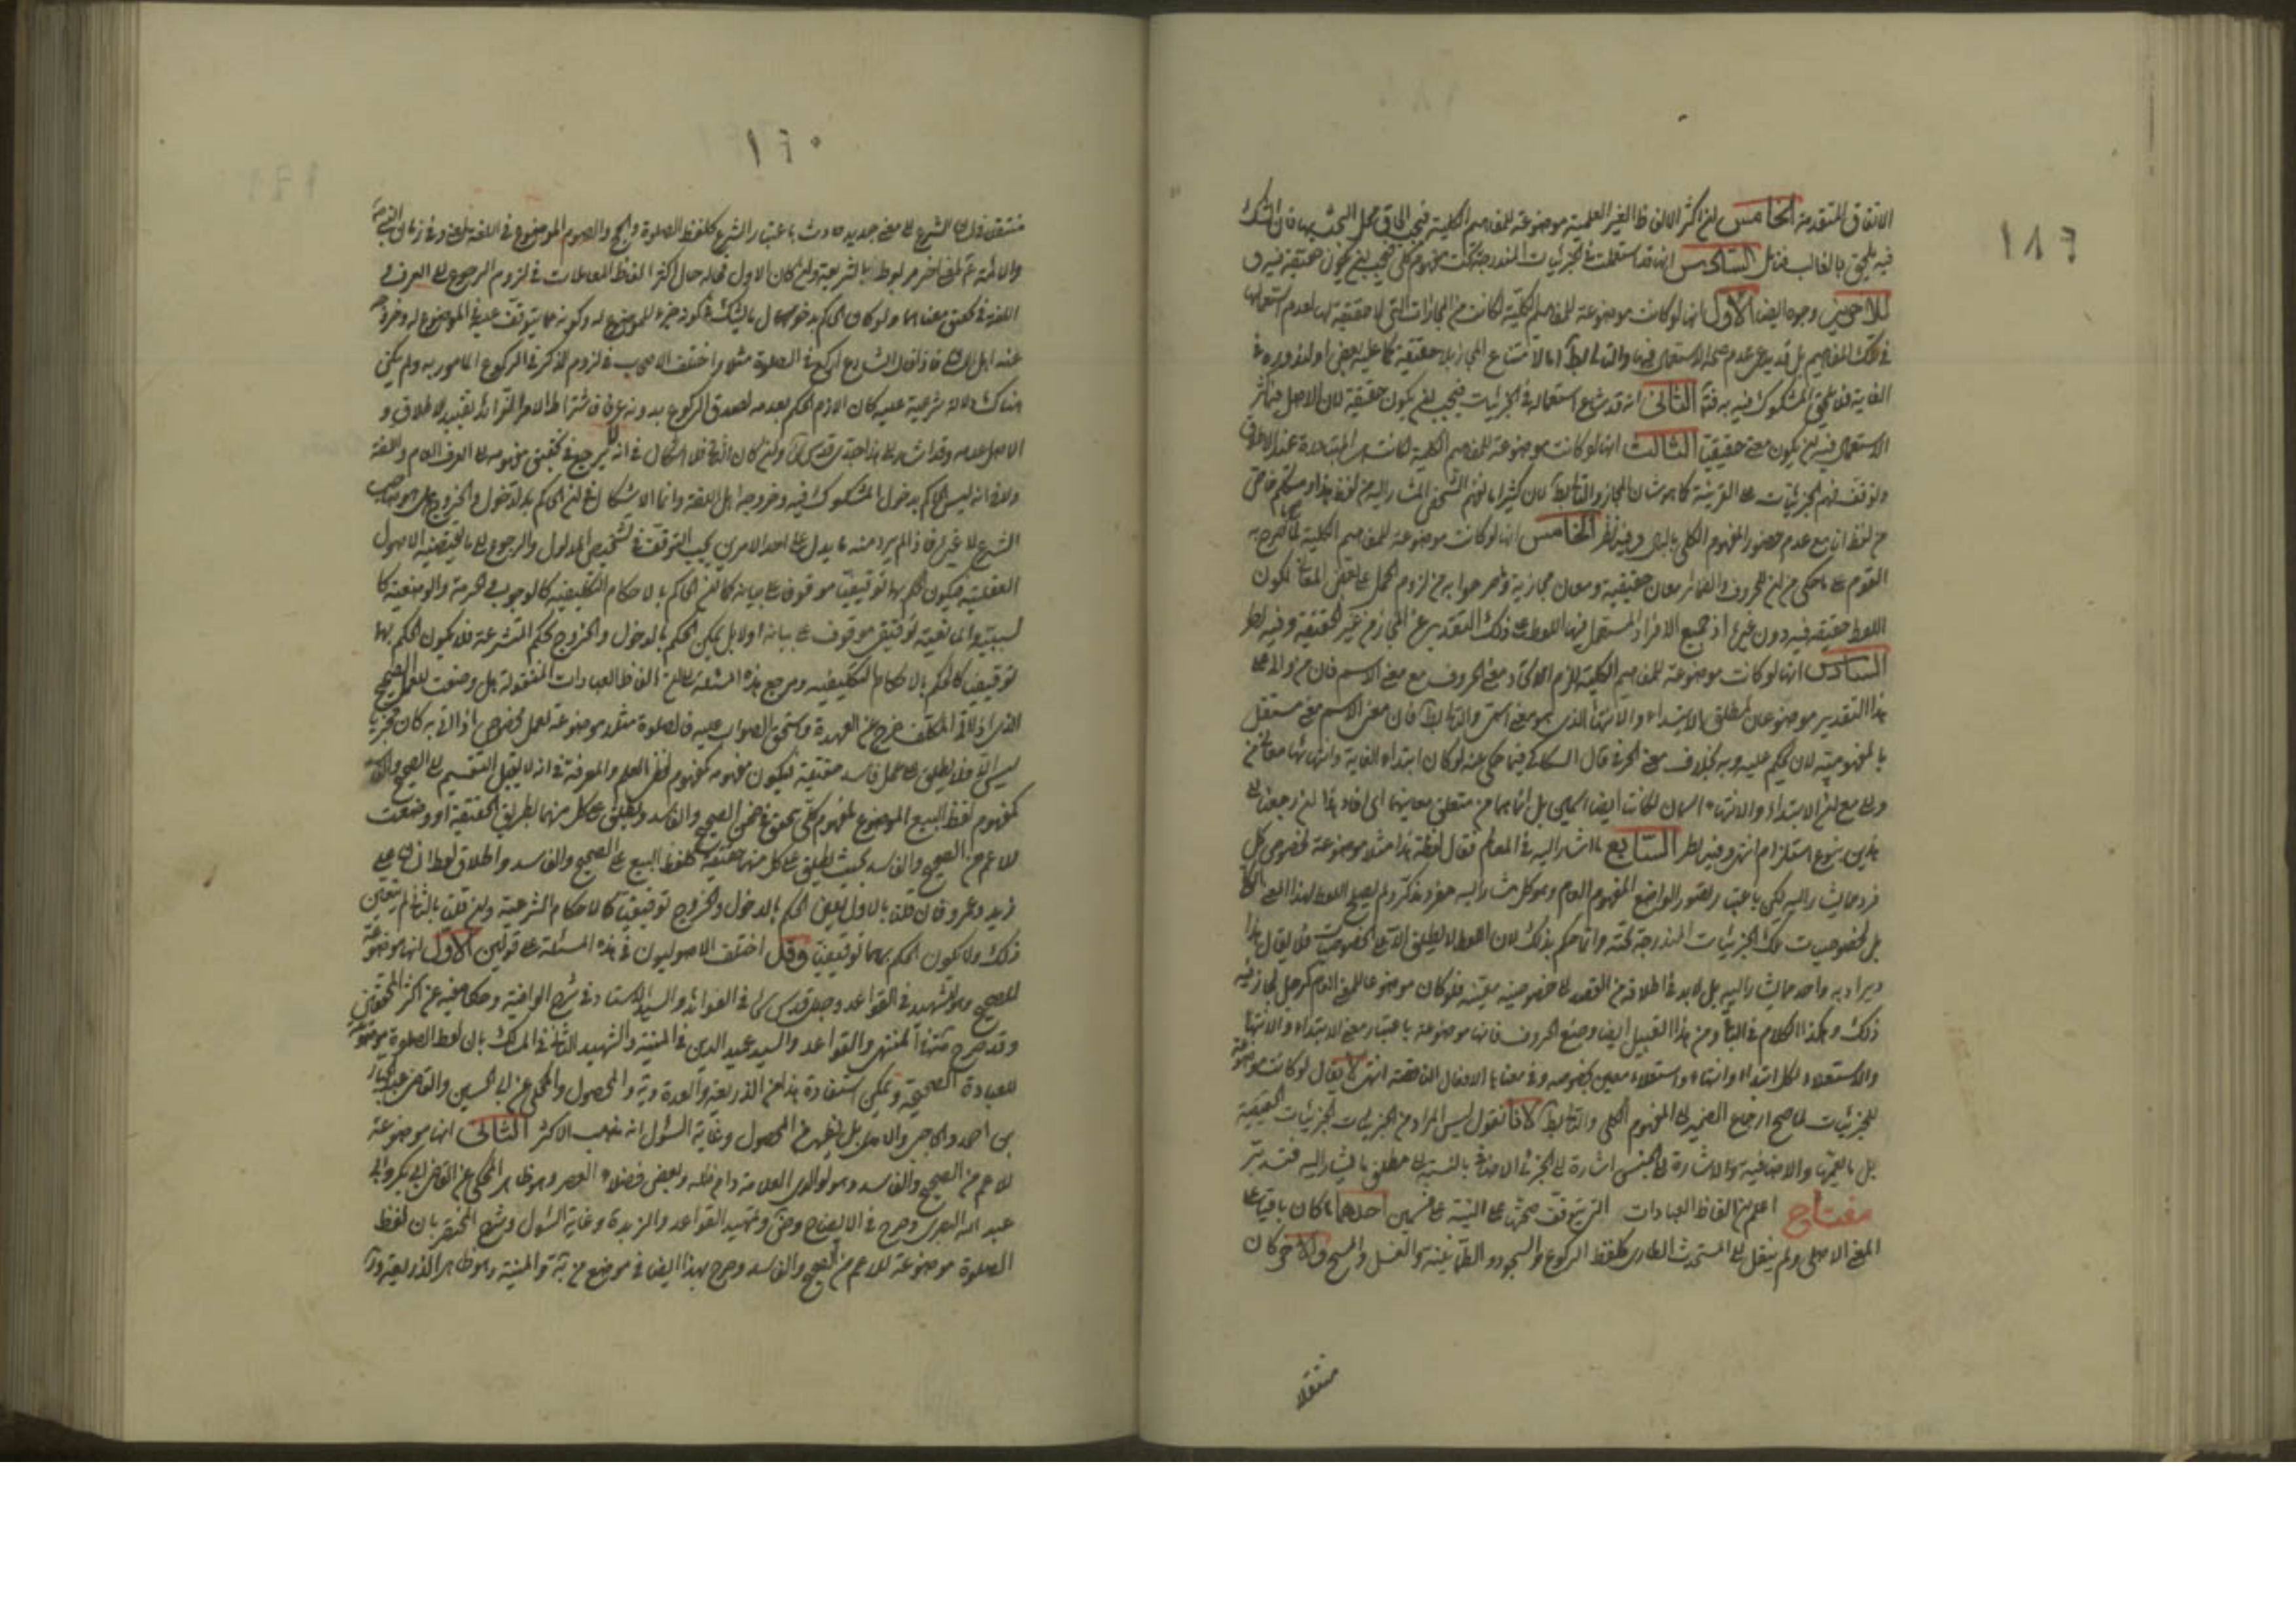 ١٨٦
الاتفاق المتقدمة الخامس ان اكثر الالفاظ الغير العلمية موضوعة للمفاهيم الكلية فيجب الحاق محل البحث بها فان الشك
فيه يلحق بالغالب السادس انها قد استعملت في الجزئيات المندرجة تحت مفهوم كلي فيجب ان يكون حقيقة فيه
للاخرين وجوه ايضا الاول انها لو كانت موضوعة للمفاهيم الكلية لكانت من المجازات التي لا حقيقة لها لعدم استعمالها
في تلك المفاهيم بل قد يدعى عدم صحة الاستعمال فيها والتالي بط اما لامتناع المجاز بلا حقيقة كما عليه بعض او لندوره في
الغاية فلا يلحق المشكوك فيه به الثاني انه قد شاع استعماله في الجزئيات فيجب ان يكون حقيقة لان الاصل فيما كثر
الاستعمال فيه ان يكون معنى حقيقيا الثالث انها لو كانت موضوعة للمفاهيم الكلية لكانت هي المتبادرة عند الاطلاق
ولتوقف فهم الجزئيات على القرينة كما هو شان المجاز والتالي بط لان كثيرا ما نفهم الشخص المشار اليه من لفظ هذا ومتكلم خاص
من لفظ انا مع عدم حضور المفهوم الكلي بالبال وفيه نظر الخامس انها لو كانت موضوعة للمفاهيم الكلية لما صرح به
القوم على ما حكي من ان للحروف والضمائر معان حقيقية ومعان مجازية ولما صرحوا به من لزوم الحمل على بعض المعاني لكون
اللفظ حقيقة فيه دون غيره اذ جميع الافراد المستعمل فيها اللفظ على ذلك التقدير على المجاز من غير الحقيقة وفيه نظر
السادس انها لو كانت موضوعة للمفاهيم الكلية لزم الاتحاد معنى الحروف مع معنى الاسم فان من والى على
هذا التقدير موضوعان لمطلق الابتداء والانتهاء الذي هو معنى اسمي والتالي بط فان معنى الاسم معنى مستقل
بالمفهومية لان يحكم عليه وبه بخلاف معنى الحرف قال السكاكي فيما حكي عنه لو كان ابتداء الغاية وانتهائها معاني من
والى مع ان الابتداء والانتهاء اسمان لكانت ايضا اسمين بل انما هما من متعلق معانيهما اي افاد هذا ان رجعنا الى
هذين بنوع استلزام انتهى وفيه نظر السابع ما اشار اليه في المعالم فقال لفظة هذا مثلا موضوعة لخصوص كل
فرد مما يشار اليه لكن باعتبار تصور الواضع المفهوم العام وهو كل مشار اليه مفرد مذكر ولم يضع اللفظ لهذا المعنى الكلي
بل لخصوصيات تلك الجزئيات المندرجة تحته وانما حكم بذلك لان اللفظ لا يطلق الا على الخصوصيات فلا يقال هذا
ويراد به واحد مما يشار اليه بل لا بد في اطلاقه من القصد الى خصوصية معينة فلو كان موضوعا للمعنى العام كرجل لجاز فيه
ذلك وهكذا الكلام في الباقي ومن هذا القبيل ايضا وضع الحروف فانها موضوعة باعتبار معنى الابتداء والانتهاء
والاستعلاء لكل ابتداء وانتهاء واستعلاء معين بخصوصه وفي معناها الافعال الناقصة انتهى لا يقال لو كانت موضوعة
للجزئيات لما صح ارجاع الضمير الى المفهوم الكلي والتالي بط لانا نقول ليس المراد من الجزئيات الجزئيات الحقيقية
بل ما يعمها والاضافية والاشارة الى الجنس اشارة الى الجزئي الاضافي بالنسبة الى مطلق ما يشار اليه فتدبر
مفتاح اعلم ان الفاظ العبادات التي يتوقف صحتها على النية على قسمين احدهما ما كان باقيا على
المعنى الاصلي ولم ينقل الى المستحدث الطاري كلفظ الركوع والسجود والطمأنينة والغسل والمسح والاخر ما كان
منتقلا
١٦٠
منتقلا في الشرع الى معنى جديد حادث باعتبار الشرع كلفظ الصلوة والحج والصوم الموضوع في اللغة
والائمة ع لمعنى اخر مربوط بالشريعة وان كان الاول فحاله حال اكثر الفاظ المعاملات في لزوم الرجوع الى العرف
اللغة في تحقيق معناها ولو كان الحكم به خوصل بالشك في كونه جزء للموضوع له وكونه مما يتوقف عليه الموضوع له وخروجه
عنه اهل فاذا قال الشارع اركع في الصلوة مثلا واختلف الاصحاب في لزوم الذكر في الركوع المامور به ولم يكن
هناك دلالة شرعية عليه كان اللازم الحكم بعدمه لصدق الركوع بدونه عرفا فاشتراط الامر الزائد تقييد للاطلاق و
الاصل عدمه وقد اشار الى هذا جدي قدس سره وان كان الثاني فلا اشكال في انه لا يرجع في تحقيق مفهومه الى العرف العام واللغة
ولا في انه ليس الحاكم بدخول المشكوك فيه وخروجه اهل اللغة وانما الاشكال في ان الحاكم بالدخول والخروج هل هو صاحب
الشرع لا غير فاذا لم يرد منه ما يدل على احد الامرين يجب التوقف في تشخيص المدلول والرجوع الى ما يقتضيه الاصول
العقلية فيكون الحكم بها توقيفيا موقوفا على بيانه كما ان الحكم بالاحكام التكليفية كالوجوب والحرمة والوضعية كا
لسببية والمانعية توقيفي موقوف على بيانه او لا بل يمكن الحكم بالدخول والخروج بحكم المتشرعة فلا يكون الحكم بها
توقيفيا كالحكم بالاحكام التكليفية ومرجع هذه المسئلة الى ان الفاظ العبادات المنقولة هل وضعت للعمل الصحيح
الذي اذا اتى المكلف خرج عن العهدة واستحق الثواب عليه فالصلوة مثلا موضوعة لعمل مخصوص اذا اتى به كان مجزيا
ليس الا فلا يطلق على عمل فاسد حقيقة فيكون مفهومه كمفهوم لفظ العلم والمعرفة في انه لا يقبل التقسيم الى الصحيح والفاسد
كمفهوم لفظ البيع الموضوع لمفهوم كلي يتحقق في ضمن الصحيح والفاسد ويطلق على كل منهما بطريق الحقيقة او وضعت
للاعم من الصحيح والفاسد بحيث يطلق على كل منهما حقيقة كلفظ البيع على الصحيح والفاسد واطلاق لفظ الانسان على
زيد وعمرو فان قلنا بالاول تعين الحكم بالدخول والخروج توقيفيا كالاحكام الشرعية وان قلنا بالثاني لم يتعين
ذلك ولا يكون الحكم بهما توقيفيا وقد اختلف الاصوليون في هذه المسئلة على قولين الاول انها موضوعة
للصحيح وهو للشهيد في القواعد وجدي قدس سره في الفوائد والسيد الاستاد في شرح الوافية وحكاه فيه عن اكثر المحققين
وقد صرح في المنتهى والقواعد والسيد عميد الدين في المنية والشهيد الثاني في المسالك بان لفظ الصلوة موضوعة
للعبادة الصحيحة ويمكن استفادة هذا من الذريعة والعدة والمحصول والمحكي عن ابي الحسين والقاضي عبد الجبار
بن احمد والحاجبي والامدي بل يظهر من المحصول وغاية السئول انه مذهب الاكثر الثاني انها موضوعة
للاعم من الصحيح والفاسد وهو لوالدي العلامة دام ظله وبعض فضلاء العصر وهو ظاهر المحكي عن القاضي ابي بكر وابي
عبد الله البصري وصرح في الايضاح وتمهيد القواعد والزبدة وغاية السئول وشرح المختصر بان لفظ
الصلوة موضوعة للاعم من الصحيح والفاسد وصرح بهذا ايضا في موضع من المنية وهو ظاهر الذريعة